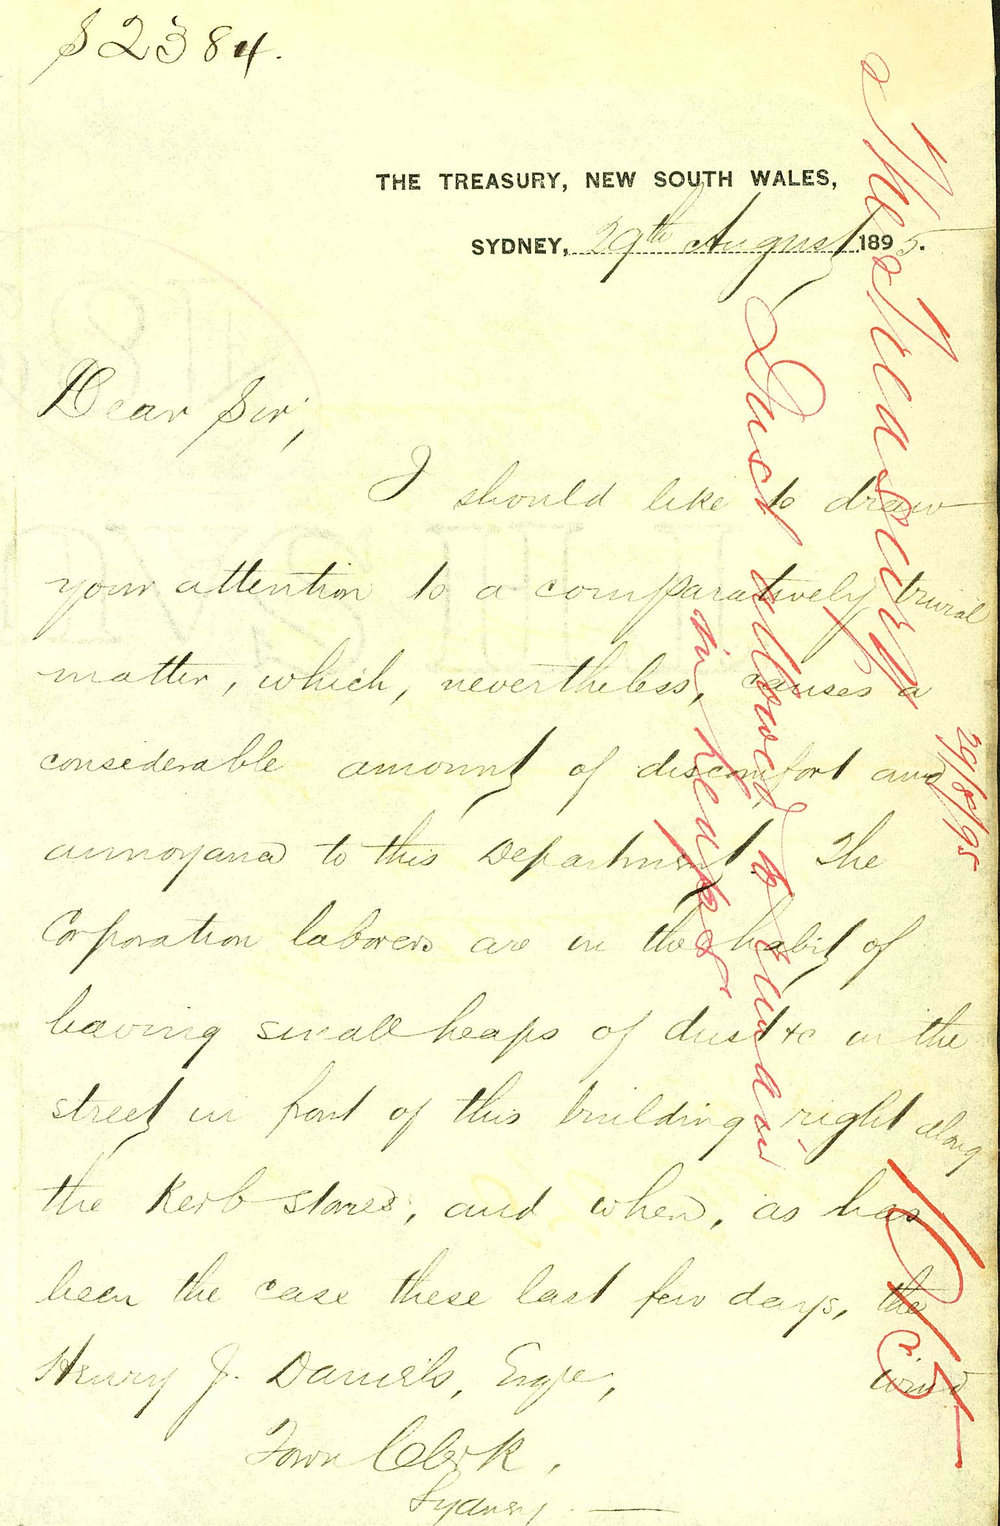 $2384.
THE TREASURY, NEW SOUTH WALES,
SYDNEY, 29th August 1895.
Dear Sir,
I should like to draw
your attention to a comparatively trivial
matter, which, nevertheless, causes a
considerable amount of discomfort and
annoyance to this Department. The
Corporation laborers are in the habit of
leaving small heaps of dust &c in the
street in front of this building right along
the Kerb stones, and when, as has
been the case these last few days, the
wind
Henry J. Daniels, Esqre,
Town Clerk,
Sydney.
The Treasury
29/8/95
Dust allowed to remain
in heaps